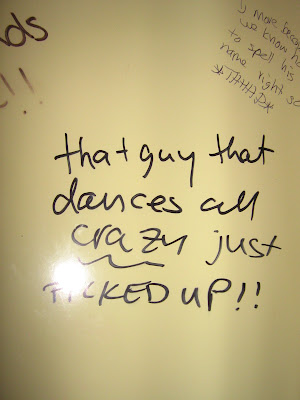 nds
!!
y more becau
we know h
to spell his
name right so
*TAHAD*
that guy that
dances all
crazy just
FUCKED UP!!